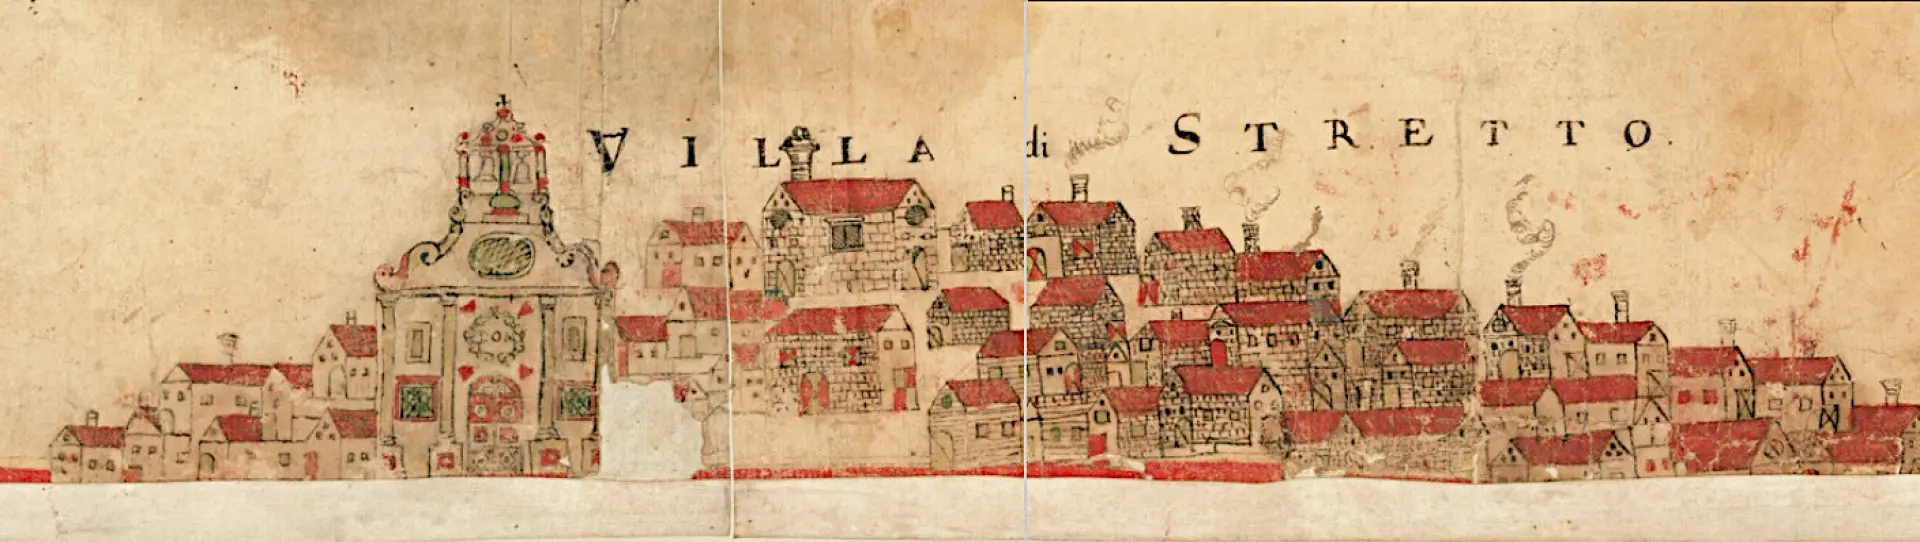 VILLA di STRETTO.